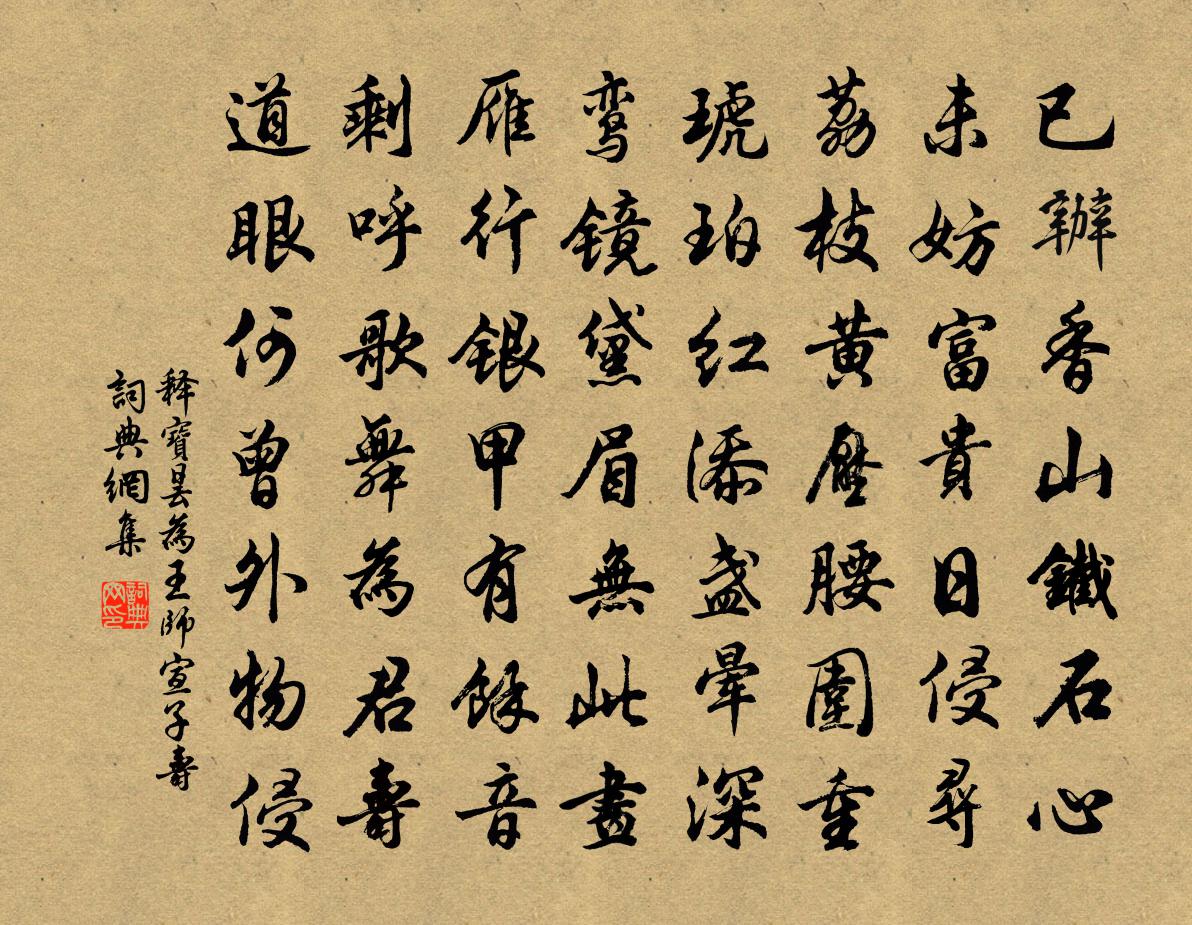 已辦香山鐵石心
未妨富貴日侵尋
荔枝黄壓腰圍重
琥珀紅添盏暈深
鸾镜黛眉無此畫
雁行銀甲有餘音
剩呼歌舞為君壽
道眼何曾外物侵
释寶曇為王師宣子壽
詞典網集
詞典網印